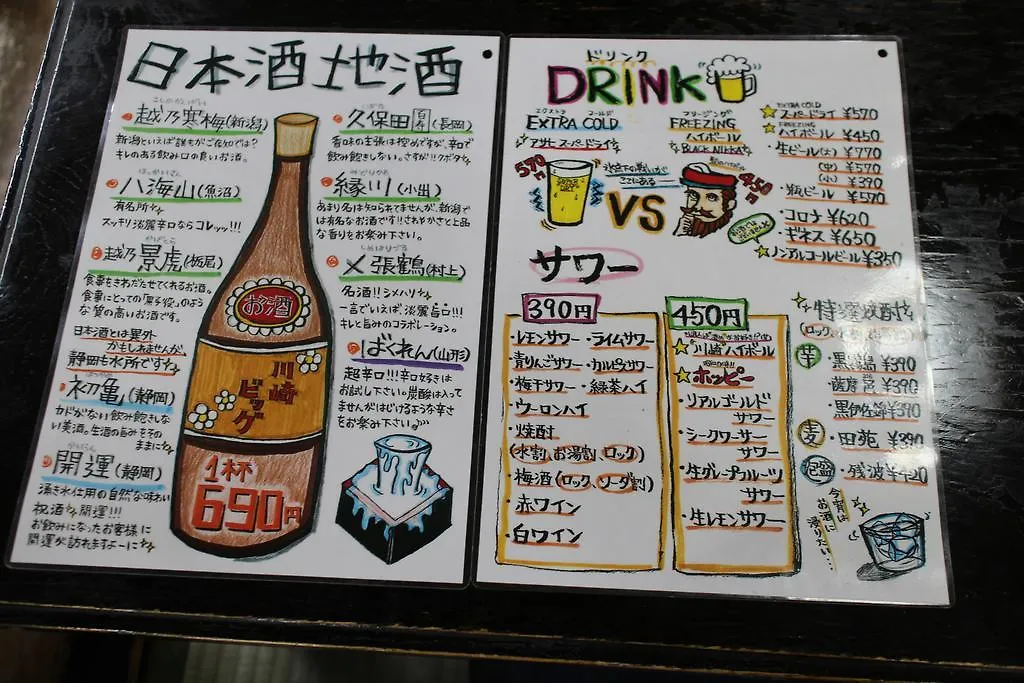 日本酒地酒
越乃寒梅(新潟)
新潟といえば誰もがご存知では?
キレのある飲み口の良いお酒。
八海山(魚沼)
有名所
スッキリ淡麗辛口ならコレッ!!!
越乃景虎(栃尾)
食事をきわだたせてくれるお酒。
食事にとっての「黒子役」のよう
な質の高いお酒です。
日本酒とは異外
かもしれませんが、
静岡も水所です
初亀(静岡)
カドがない飲み飽きしな
い美酒。生酒の旨みその
ままに
開運(静岡)
湧き水仕用の自然な味わい
祝酒 開運!!!
お飲みになったお客様に
開運が訪れますよーに
お酒
川崎
ビッグ
1杯
690円
久保田 百寿 (長岡)
香味の主張は控めですが、辛口で
飲み飽きしない。さすが!!クボタ
縁川(小出)
あまり名は知られてませんが、新潟
では有名なお酒です!!さわやかさと上品
な香りをお楽み下さい。
〆張鶴(村上)
名酒!!シメハリ
一言でいえば、淡麗旨口!!!
キレと旨みのコラボレーション。
ばくれん(山形)
超辛口!!!辛口好きは
お試し下さい。炭酸は入って
ませんがはじけるような辛さ
をお楽み下さい
ドリンク
DRINK
エクストラ コールド
EXTRA COLD
アサヒ スーパードライ
570円
氷点下の戦いが
ここにある
VS
フリージング
FREEZING
ハイボール
BLACK NIKKA
450円
EXTRA COLD
スーパードライ ¥570
FREEZING
ハイボール ¥450
・生ビール(大) ¥770
(中) ¥570
(小) ¥390
・瓶ビール ¥590
・コロナ ¥620
・ギネス ¥650
ノンアルコールビール ¥350
サワー
390円
・レモンサワー ・ライムサワー
・青りんごサワー ・カルピスサワー
・梅干サワー ・緑茶ハイ
・ウーロンハイ
・焼酎
(水割、お湯割、ロック)
・梅酒(ロック、ソーダ割)
・赤ワイン
・白ワイン
450円
川崎ハイボール
ホッピー
・リアルゴールド
サワー
・シークワーサー
サワー
・生グレープフルーツ
サワー
・生レモンサワー
特選焼酎
芋
・黒霧島 ¥390
・薩摩 ¥390
・黒伊佐錦 ¥390
麦
・田苑 ¥390
泡盛
・残波 ¥420
今宵は
お酒に
溺りたい…